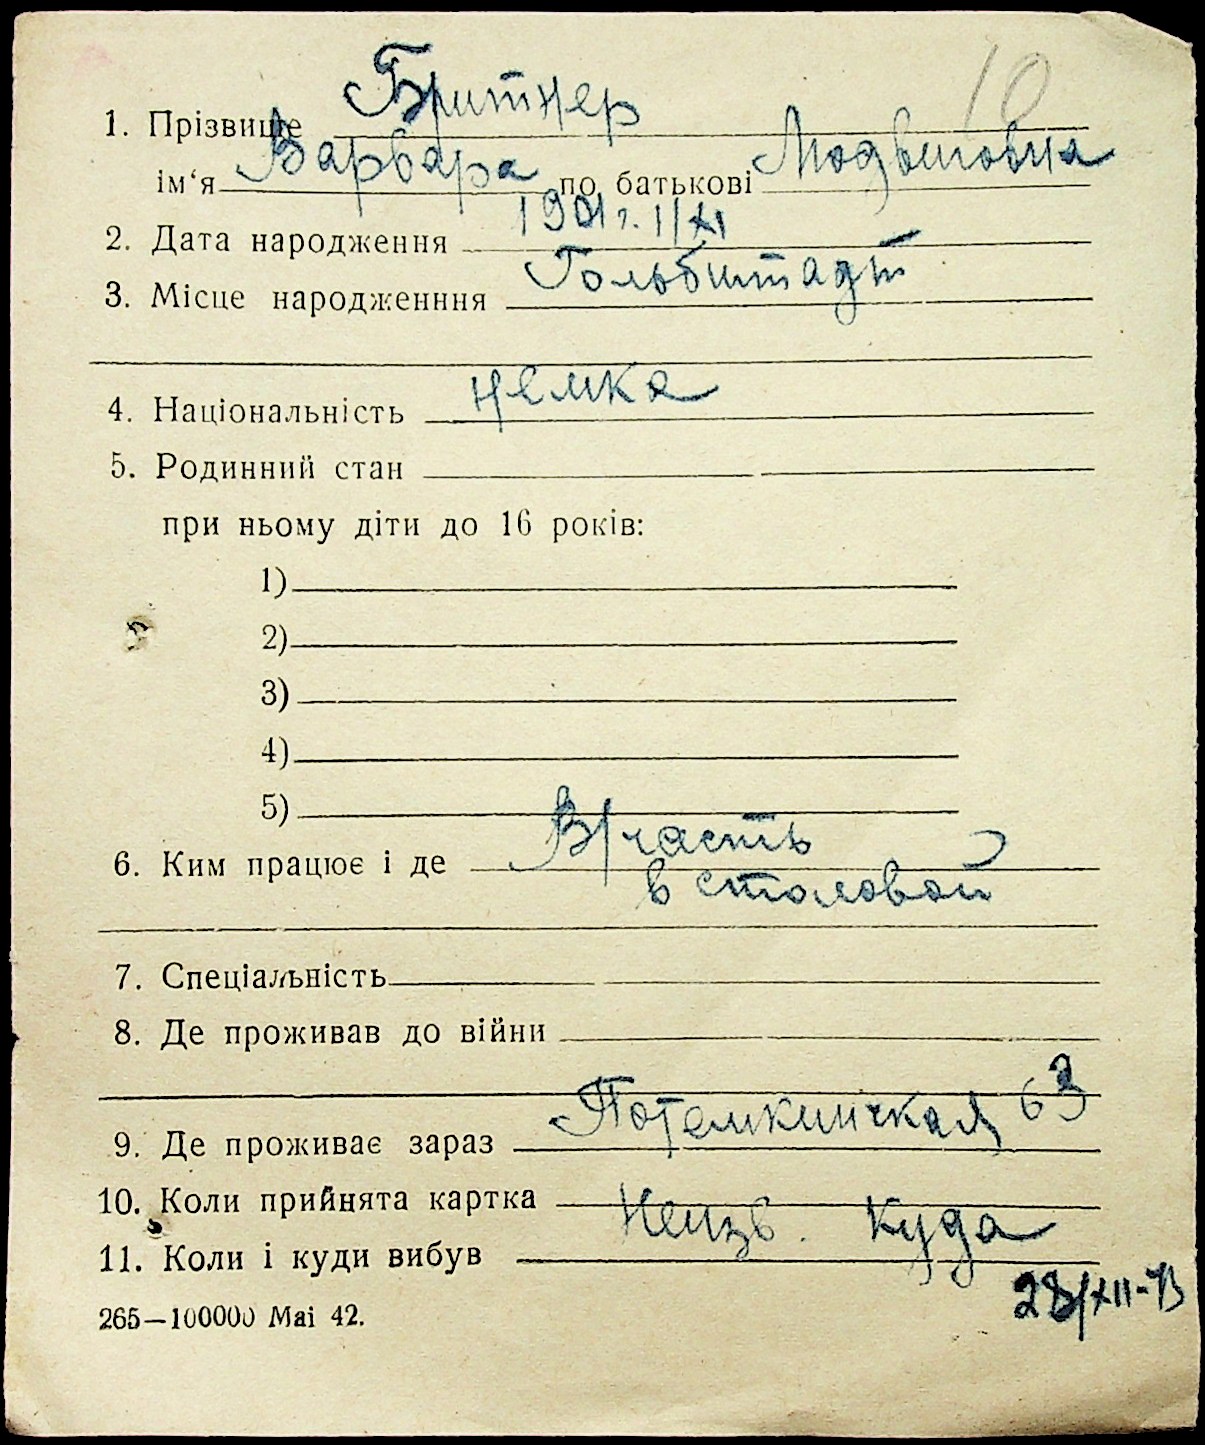 10
1. Прізвище Бритнер
ім‘я Варвара по батькові Людвиговна
2. Дата народження 1901 г. 1/XI
3. Місце народженння Гольбштадт
4. Національність немка
5. Родинний стан
при ньому діти до 16 років:
1)
2)
3)
4)
5)
6. Ким працює і де В/часть
в столовой
7. Спеціальність
8. Де проживав до війни
9. Де проживає зараз Потемкинчкая 63
10. Коли прийнята картка
11. Коли і куди вибув Неизв. куда
28/XII-43
265—100000 Маі 42.